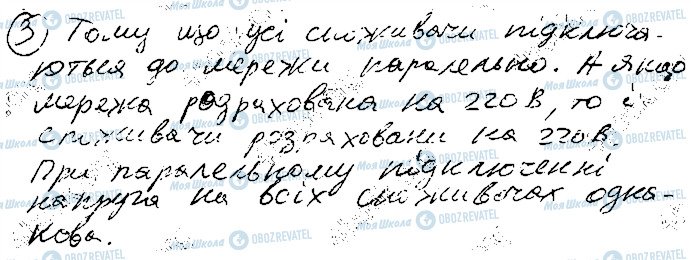 ③ Тому що усі споживачи підключа-
ються до мережи паралельно. А якщо
мережа розрахована на 220 В, то і
споживачи розраховани на 220 В.
При паралельному підключенні
напруга на всіх споживачах одна-
кова.